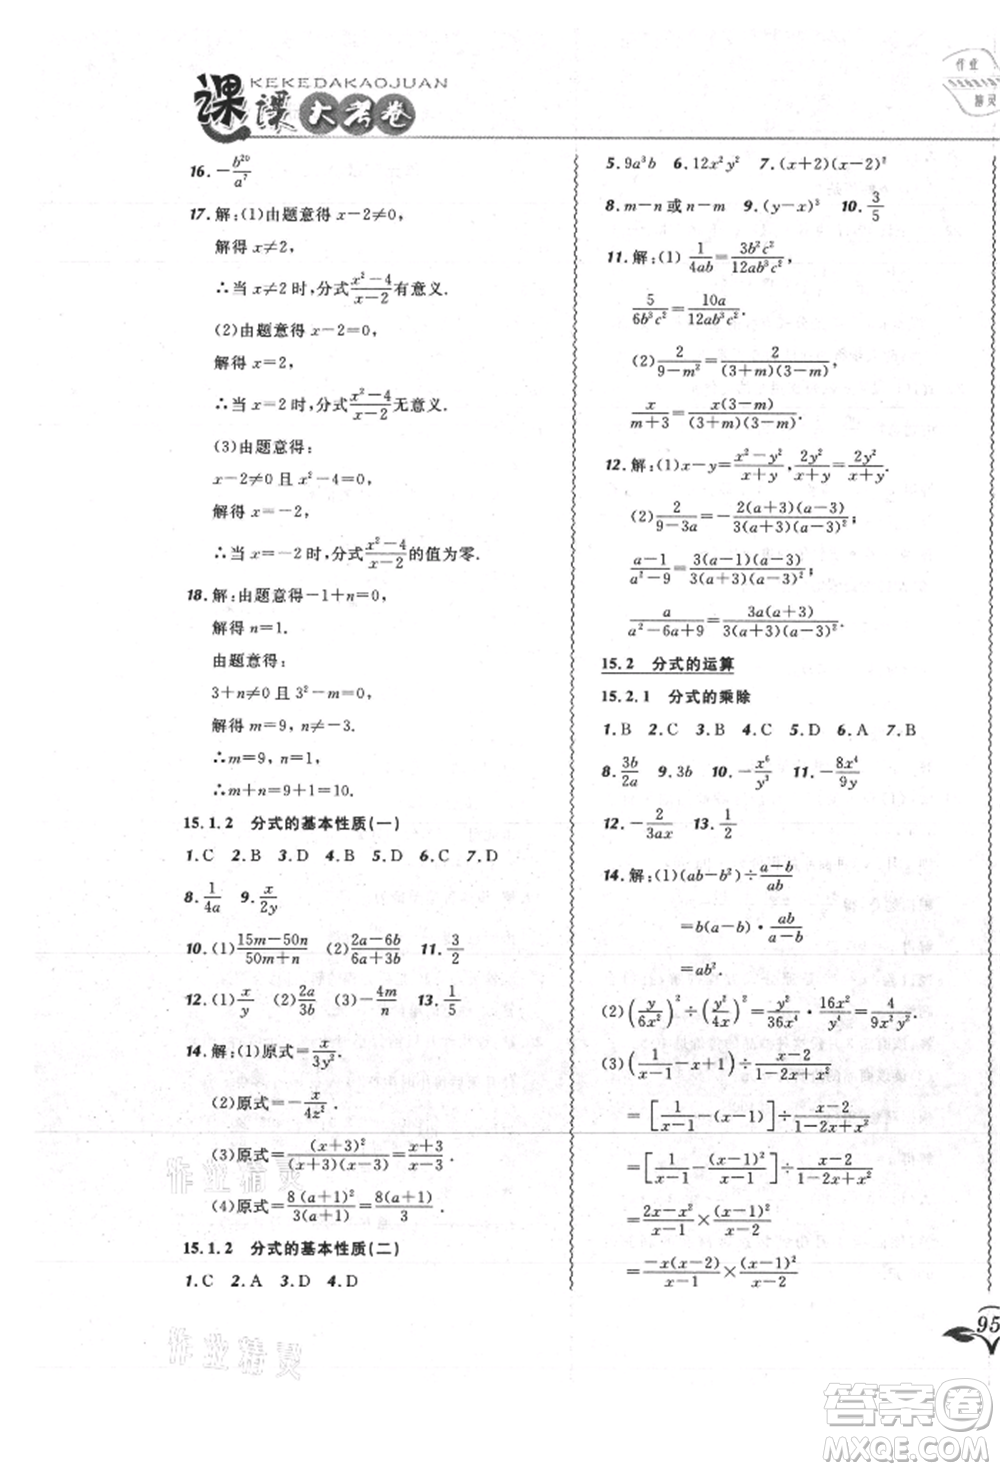 KEKEDAKAOJUAN
课课大考卷
作业
精灵
16. -b²⁰/a⁷
17. 解:(1)由题意得 x-2≠0,
解得 x≠2,
∴当 x≠2 时,分式(x²-4)/(x-2)有意义.
(2)由题意得 x-2=0,
解得 x=2,
∴当 x=2 时,分式(x²-4)/(x-2)无意义.
(3)由题意得:
x-2≠0 且 x²-4=0,
解得 x=-2,
∴当 x=-2 时,分式(x²-4)/(x-2)的值为零.
18. 解:由题意得-1+n=0,
解得 n=1.
由题意得:
3+n≠0 且 3²-m=0,
解得 m=9,n≠-3.
∴m=9,n=1,
∴m+n=9+1=10.
15.1.2 分式的基本性质(一)
1.C 2.B 3.D 4.B 5.D 6.C 7.D
8. 1/(4a) 9. x/(2y)
10. (1)(15m-50n)/(50m+n) (2)(2a-6b)/(6a+3b) 11. 3/2
12. (1)x/y (2)2a/(3b) (3)-4m/n 13. 1/5
14. 解:(1)原式=x/(3y²).
(2)原式=-x/(4z²).
(3)原式=(x+3)²/((x+3)(x-3))=(x+3)/(x-3).
(4)原式=8(a+1)²/(3(a+1))=8(a+1)/3.
15.1.2 分式的基本性质(二)
1.C 2.A 3.D 4.D
5. 9a³b 6. 12x²y² 7. (x+2)(x-2)²
8. m-n 或 n-m 9. (y-x)³ 10. 3/5
11. 解:(1) 1/(4ab)=3b²c²/(12ab³c²),
5/(6b³c²)=10a/(12ab³c²).
(2) 2/(9-m²)=2/((3+m)(3-m)),
x/(m+3)=x(3-m)/((3+m)(3-m)).
12. 解:(1)x-y=(x²-y²)/(x+y),2y²/(x+y)=2y²/(x+y).
(2) 2/(9-3a)=-2(a+3)(a-3)/(3(a+3)(a-3)²,
(a-1)/(a²-9)=3(a-1)(a-3)/(3(a+3)(a-3)²,
a/(a²-6a+9)=3a(a+3)/(3(a+3)(a-3)².
15.2 分式的运算
15.2.1 分式的乘除
1.B 2.C 3.B 4.C 5.D 6.A 7.B
8. 3b/(2a) 9. 3b 10. -x⁶/y³ 11. -8x⁴/(9y)
12. -2/(3ax) 13. 1/2
14. 解:(1)(ab-b²)÷(a-b)/(ab)
=b(a-b)·ab/(a-b)
=ab².
(2)(y/(6x²))²÷(y²/(4x))²=y²/(36x⁴)·16x²/y⁴=4/(9x²y²).
(3)(1/(x-1)-x+1)÷(x-2)/(1-2x+x²)
=[1/(x-1)-(x-1)]÷(x-2)/(1-2x+x²)
=[1/(x-1)-(x-1)²/(x-1)]÷(x-2)/(1-2x+x²)
=(2x-x²)/(x-1)×(x-1)²/(x-2)
=-x(x-2)/(x-1)×(x-1)²/(x-2)
95
作业精灵
作业精灵
答案圈
MXQE.COM